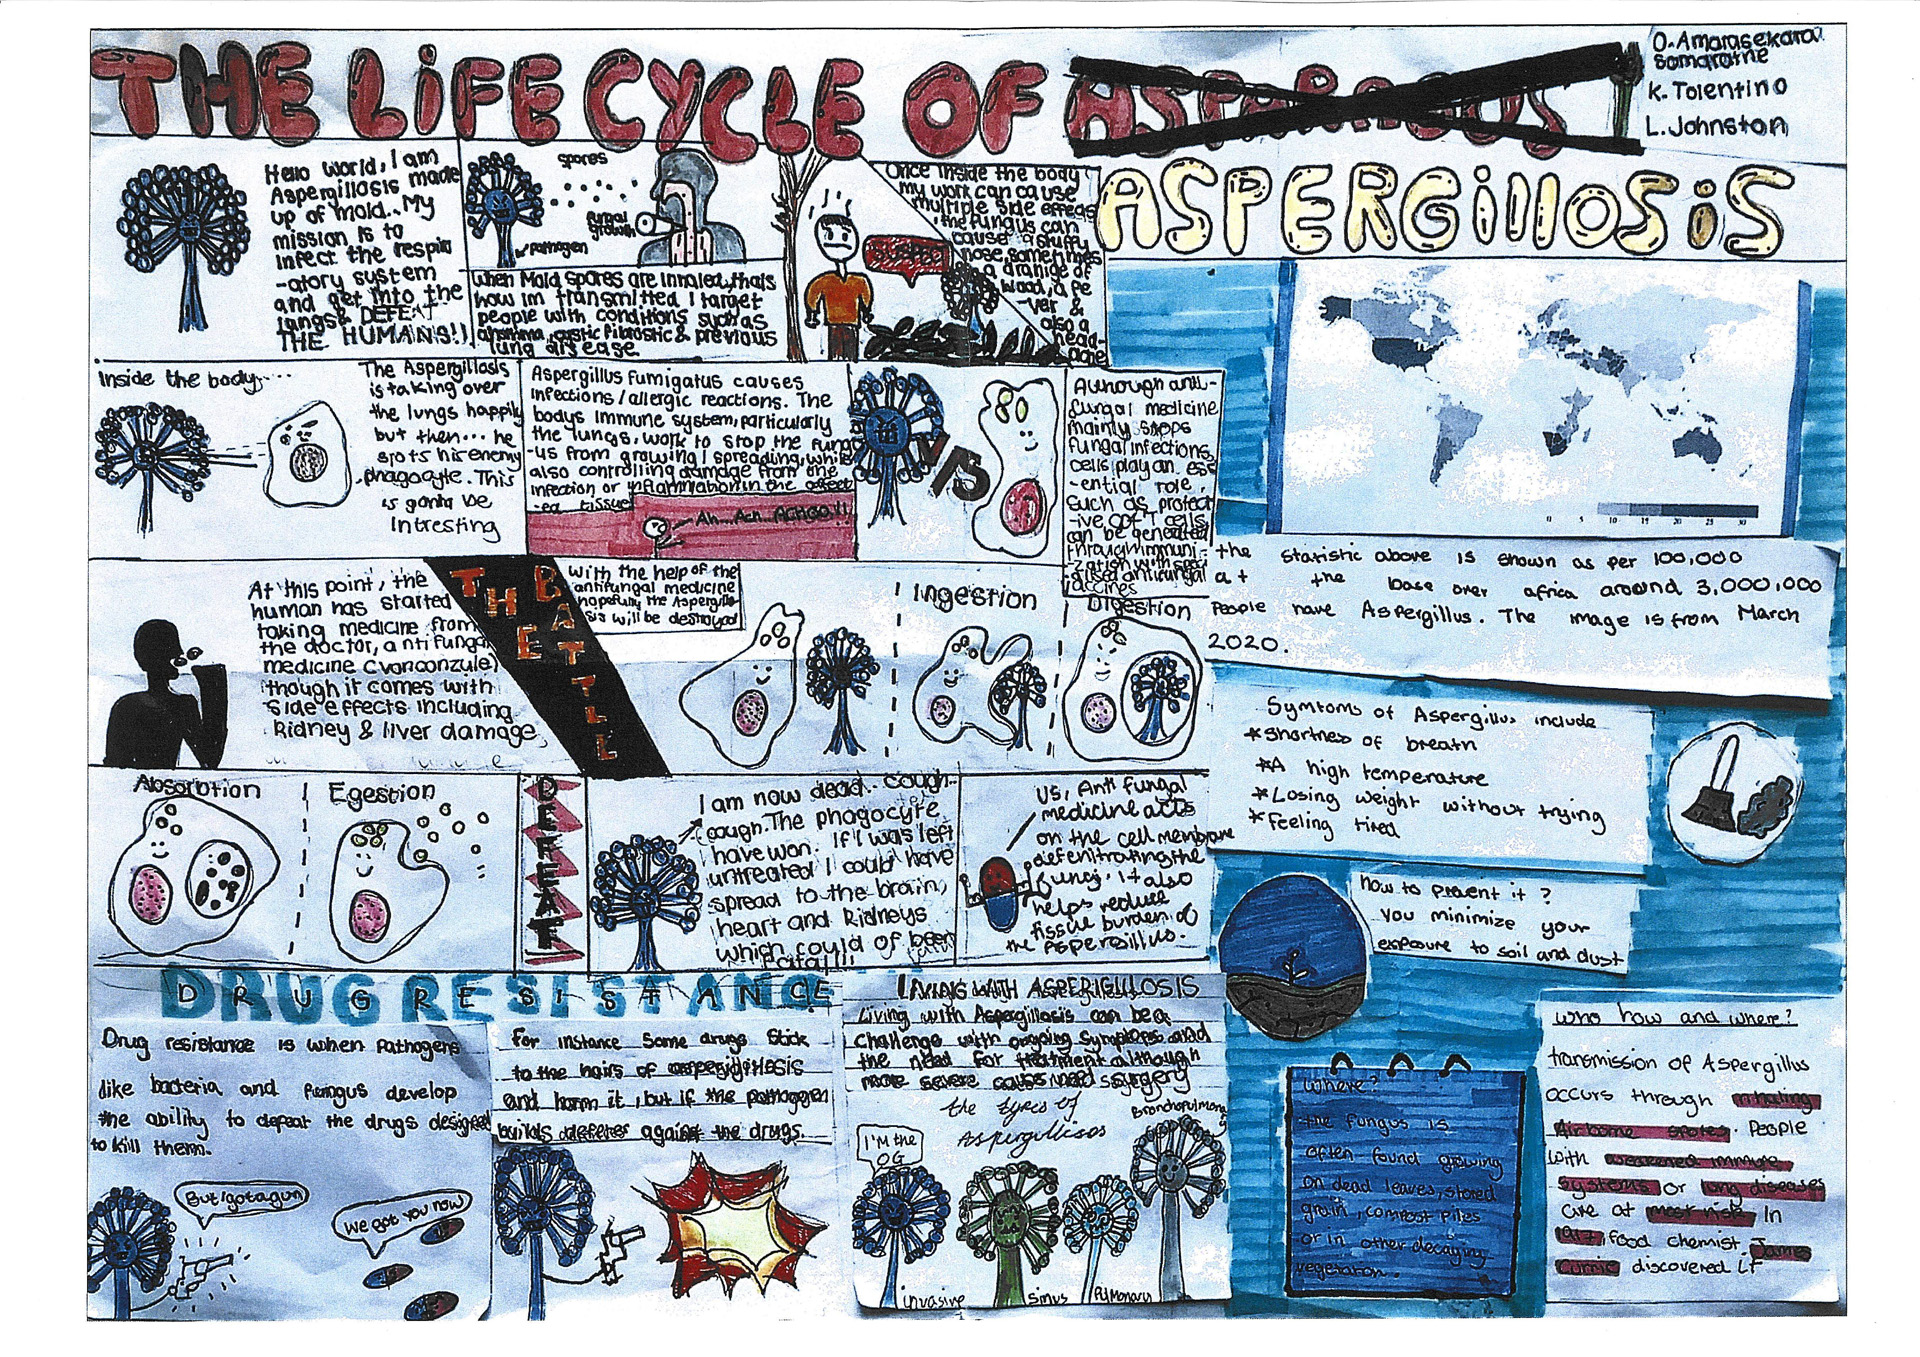 THE LIFE CYCLE OF ASPARAGUS
O. Amarasekara
Samaratne
K. Tolentino
L. Johnston
ASPERGillOSiS
Hello World, I am
Aspergillosis made
up of mold.. My
mission is to
infect the respir
-atory system
and get into the
langs& DEFEAT
THE HUMANS!)
spores
fungal
growth
pathogen
When Mold spores are inhaled, thats
how im transmitted I target
people with conditions such as
cystic fibrostic & previous
lung disease
Once inside the body
my work can cause
multiple side effects
, the fungus can
cause a stuffy
nose, sometimes
a dranige of
blood, a fe
-ver &
also a
head-
ache
Inside the body....
The Aspergillosis
is taking over
the lungs happily
but then... he
spots his enemy
phagocyte. This
is gonna be
Intresting
Aspergillus fumigatus causes
infections/allergic reactions. The
bodys immune system, particularly
the lungs, work to stop the fung
-us from growing/spreading, while
also controlling damdge from the
infection or inflammation in the affect
-ed tissue
Ah...Ach...ACHOO!!
VS
Although anti-
fungal medicine
mainly stops
fungal infections,
cells play an ess
-ential role,
such as protect
-ive T cells
can be generated
through immuni
-zation with speci
-alised antifungal
vaccines
0 5 10 15 20 25 30
the statistic above is shown as per 100,000
at the base over africa around 3,000,000
people have Aspergillus. The image is from March
2020.
At this point, the
human has started
taking medicine from
the doctor, anti fungal
medicine (vorconzule)
though it comes with
side effects including
Kidney & liver damage
THE BATTLE
With the help of the
antifungal medicine
hopefully the Aspergillo
sis will be destroyed
Ingestion
Digestion
Symtoms of Aspergillus include
*Shortness of breath
*A high temperature
*Losing weight without trying
*Feeling tired
Absorbtion
Egestion
DEFEAT
I am now dead.. cough..
cough. The phagocyte
have won. If I was left
untreated I could have
spread to the brain,
heart and kidneys
which could of been
Fatal!!!
Us, Anti fungal
medicine acts
on the cell membrane
the
fungi. it also
helps reduce
tissue burden of
the Aspergillus.
how to prevent it?
You minimize your
exposure to soil and dust
DRUG RESISTANCE
Drug resistance is when Pathogens
like bacteria and fungus develop
the ability to defeat the drugs designed
to kill them.
But I got a gun
We got you now
For instance some drugs stick
to the hairs of
and harm it, but if the pathogen
builds against the drugs.
LIVING WITH ASPERIGILOSIS
Living with Aspergillosis can be a
challenge with ongoing symptoms and
the need for treatment although
more severe need surgery
the types of
Aspergillisos
Bronchopulmona
I'M the
OG
invasive
sinus
Pulmonary
Where?
the fungus is
often found growing
on dead leaves, stored
grain, compost piles
or in other decaying
vegetation.
who how and where?
transmission of Aspergillus
occurs through inhaling
Airborne spores. People
with weakened immune
systems or lung diseases
are at most risk. In
food chemist James
Currie discovered it